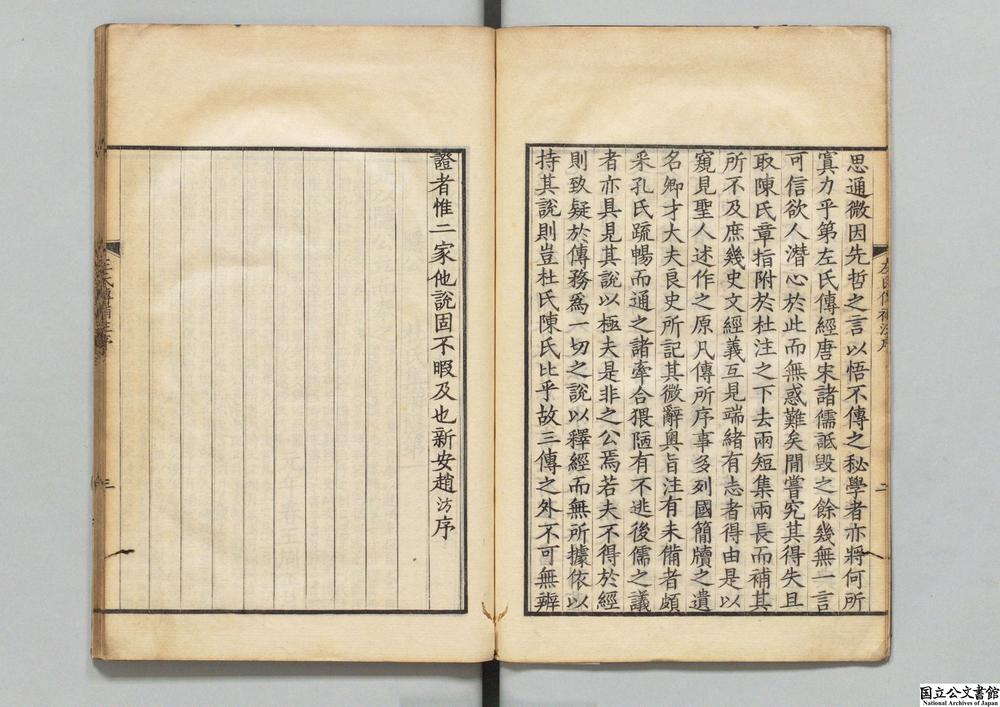 思通微因先哲之言以悟不傳之秘學者亦將何所
寘力乎第左氏傳經唐宋諸儒詆毀之餘幾無一言
可信欲人潛心於此而無惑難矣閒嘗究其得失且
取陳氏章指附於杜注之下去兩短集兩長而補其
所不及庶幾史文經義互見端緒有志者得由是以
窺見聖人述作之原凡傳所序事多列國簡牘之遺
名卿才大夫良史所記其微辭奧旨注有未備者頗
采孔氏疏暢而通之諸牽合猥陋有不逃後儒之議
者亦具見其說以極夫是非之公焉若夫不得於經
則致疑於傳務爲一切之說以釋經而無所據依以
持其說則豈杜氏陳氏比乎故三傳之外不可無辨
左氏傳補注序
二
證者惟二家他說固不暇及也新安趙汸序
左氏傳補注序
三
国立公文書館
National Archives of Japan